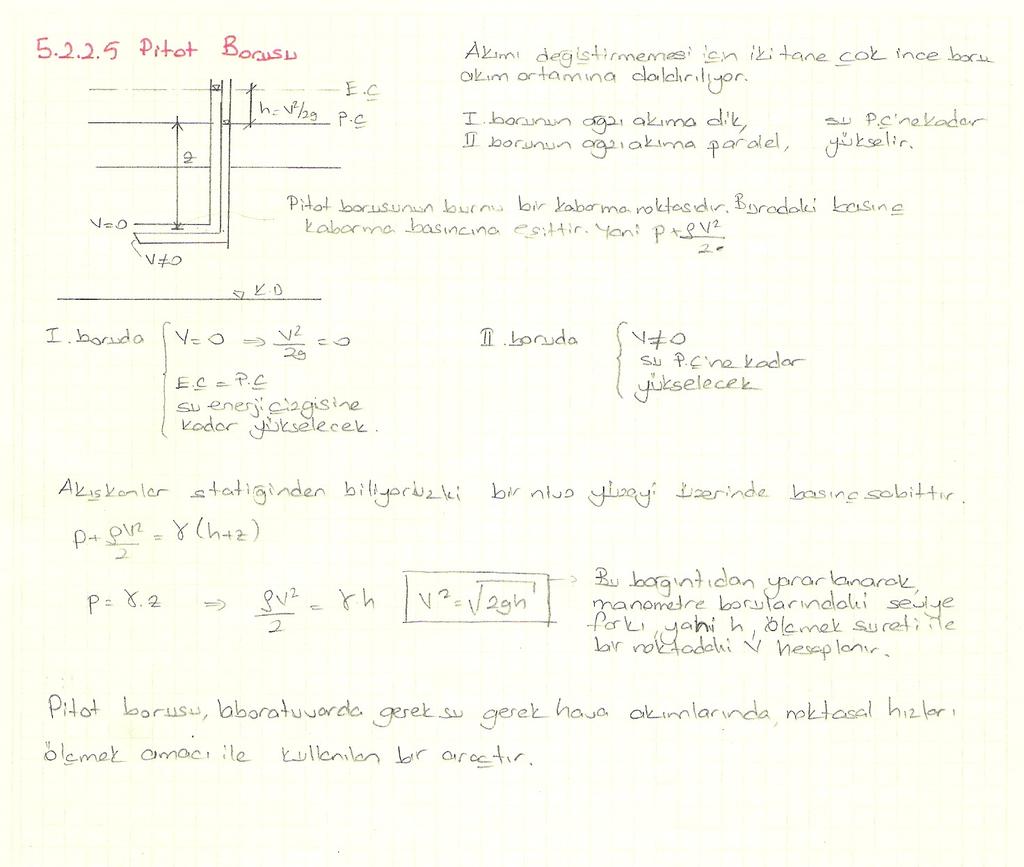 5.2.2.5 Pitot Borusu
Akımı değiştirmemesi için iki tane çok ince boru
akım ortamına daldırılıyor.
E.Ç
h=V²/2g
P.Ç
z
V=0
V≠0
K.D
I. borunun ağzı akıma dik, su P.Ç'ne kadar
II borunun ağzı akıma paralel, yükselir.
Pitot borusunun burnu bir kabarma noktasıdır. Buradaki basınç
kabarma basıncına eşittir. Yani P+ρV²/2
I. boruda V=0 ⇒ V²/2g =0
E.Ç = P.Ç
su enerji çizgisine
kadar yükselecek.
II. boruda V≠0
su P.Ç'ne kadar
yükselecek
Akışkanlar statiğinden biliyoruzki bir nivo yüzeyi üzerinde basınç sabittir.
P+ρV²/2 = γ(h+z)
P=γ.z ⇒ ρV²/2 = γ.h V²=√2gh
Bu bağıntıdan yararlanarak,
manometre borularındaki seviye
farkı, yani h, ölçmek sureti ile
bir noktadaki V hesaplanır.
Pitot borusu, laboratuvarda gerek su gerek hava akımlarında, noktasal hızları
ölçmek amacı ile kullanılan bir araçtır.